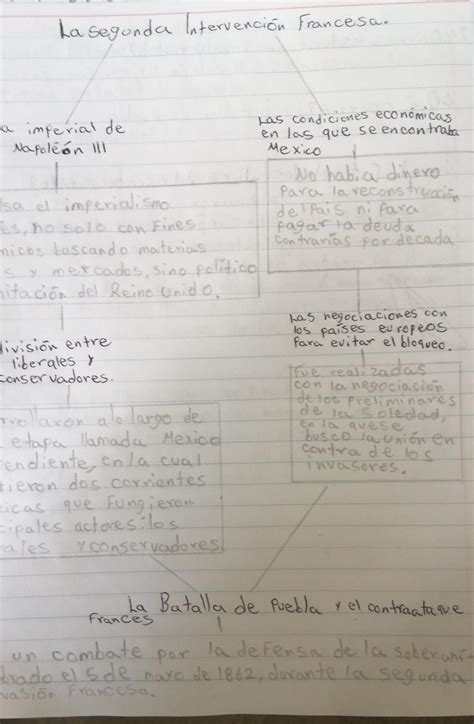 La segunda Intervención Francesa.
a imperial de
Napoléón III
sa el imperialismo
es, no solo con fines
micos buscando materias
s y mercados, sino político
itación del Reino Unido.
división entre
liberales y
conservadores.
rrollaron a lo largo de
etapa llamada Mexico
endiente, en la cual
ieron dos corrientes
icas que fungieron
cipales actores: los
rales y conservadores
Las condiciones económicas
en las que se encontraba
Mexico
No habia dinero
para la reconstrucción
del pais ni para
pagar la deuda
contrarias por decada
Las negociaciones con
los países europeos
para evitar el bloqueo.
Fue realizadas
con la negociación
de los preliminares
de la Soledad,
en la que se
busco la unión en
contra de los
invasores.
La Batalla de Puebla y el contraataque
Frances
un combate por la defensa de la soberani-
brado el 5 de mayo de 1862, durante la segunda
vasión Francesa.